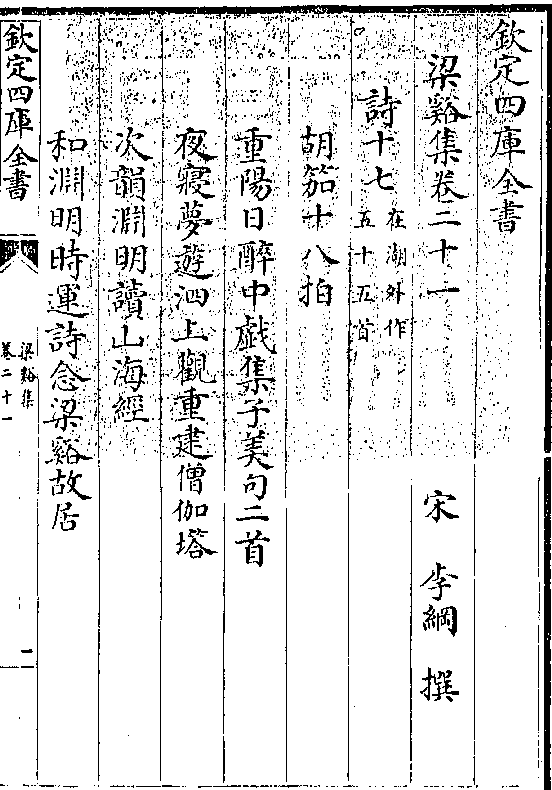 欽定四庫全書
梁谿集卷二十一
宋 李綱 撰
詩十七 在湖外作
五十五首
胡笳十八拍
重陽日醉中戲集子美句二首
夜寢夢遊泗上觀重建僧伽塔
次韻淵明讀山海經
和淵明時運詩念梁谿故居
欽定四庫全書
梁谿集
卷二十一
一